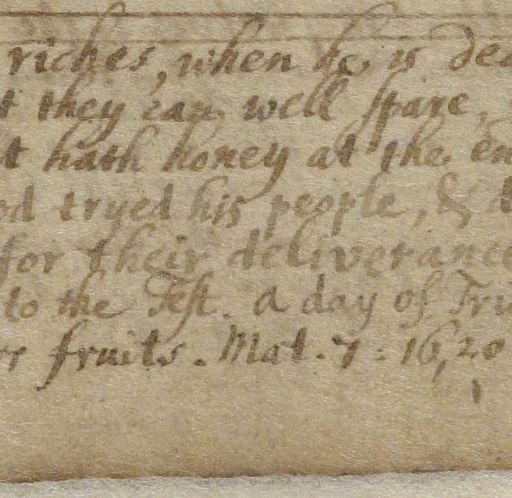 riches, when he is dea
t they can well spare,
t hath honey at the en
od tryed his people, &
for their deliverance
to the Test. a day of Try
rr fruits. Mat. 7: 16, 20